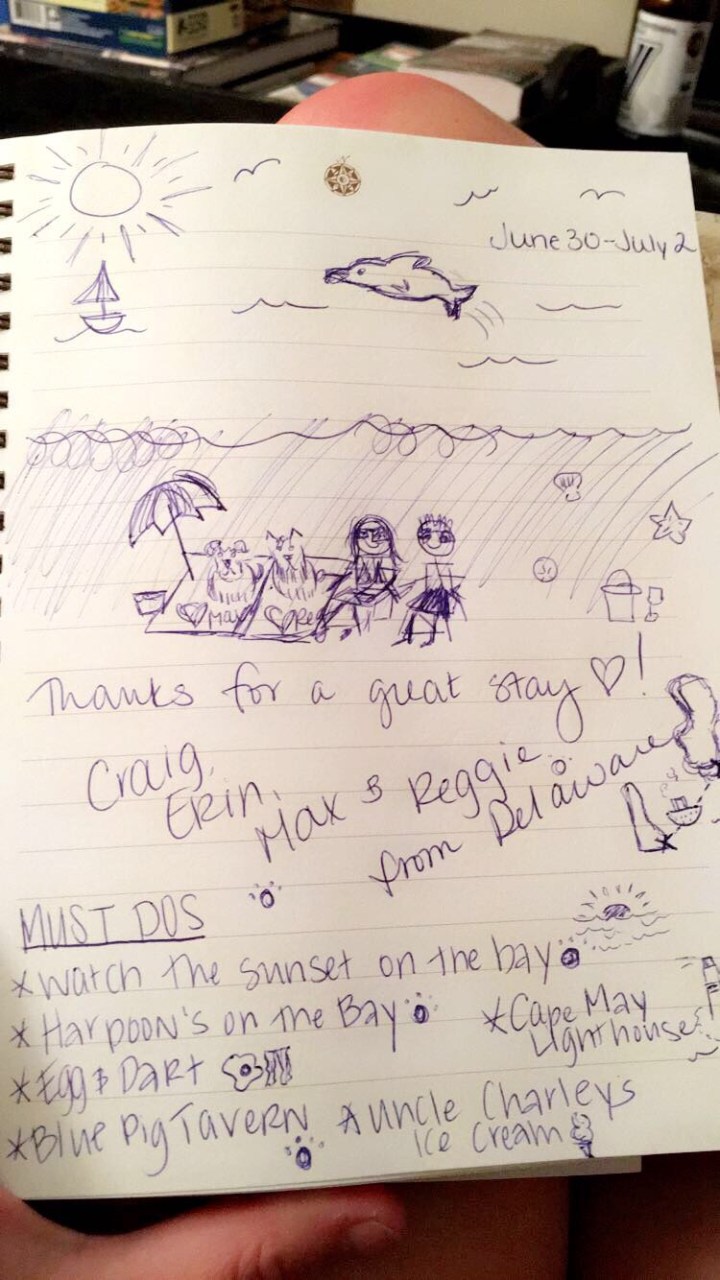 June 30-July 2
Max
Reg
Thanks for a great stay ♡!
Craig,
Erin,
Max & Reggie
from Delaware
MUST DOS
*Watch the sunset on the bay
*Harpoon's on the Bay
*Cape May
Lighthouse
*Egg & Dart
*Blue Pig Tavern *Uncle Charleys
Ice Cream